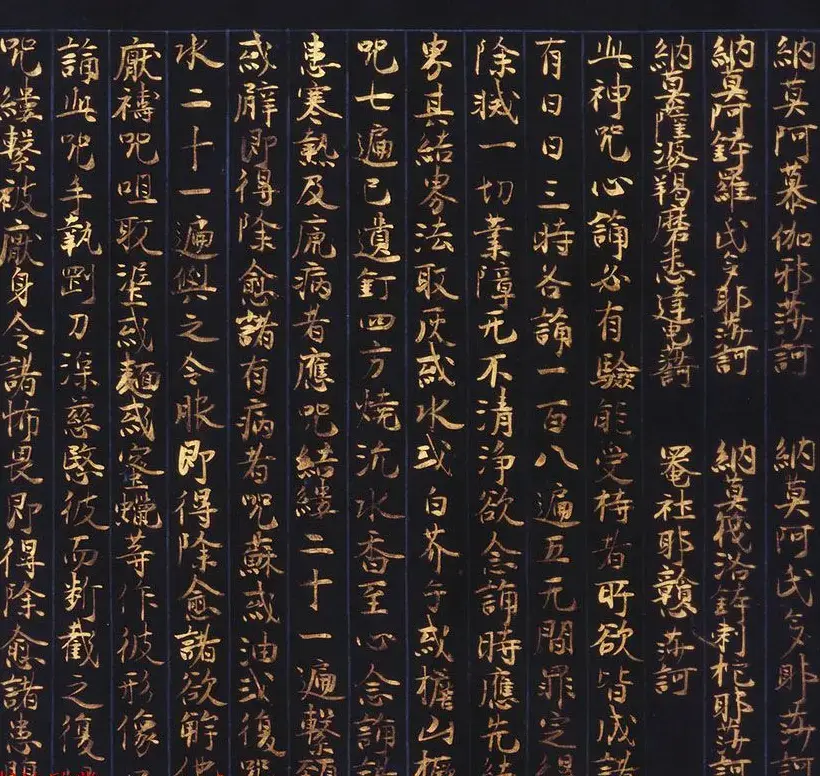 納莫阿慕伽邪莎訶 納莫阿氏多耶莎訶
納莫阿鉢羅氏多耶莎訶 納莫筏洛鉢剌柁耶莎訶
納莫薩婆羯磨悉達曳 菴社耶 莎訶
此神咒心誦必有驗能受持者所欲皆成諸
有日日三時各誦一百八遍五无間罪定得
除滅一切業障无不清淨欲念誦時應先結
界其結界法取灰或水或白芥子或檐山橛
咒七遍已遺釘四方燒沉水香至心念誦諸
患寒熱及鬼病者應咒結縷二十一遍繫頸
或臂即得除愈諸有病者咒蘇或油或復咒
水二十一遍與之令服即得除愈諸欲解他
厭禱咒咀取埿或麵或蜜蠟等作彼形像
誦此咒手執剛刀深慈愍彼而斬截之復
咒縷繫被厭身令諸怖畏即得除愈諸患